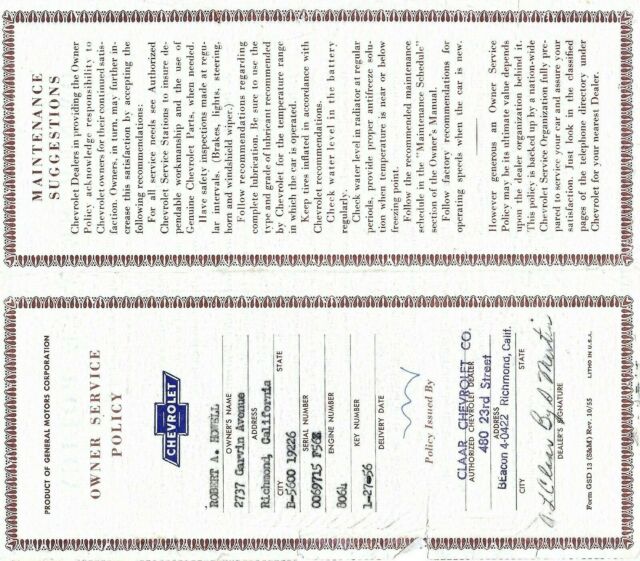 MAINTENANCE
SUGGESTIONS
Chevrolet Dealers in providing the Owner
Policy acknowledge responsibility to
Chevrolet owners for their continued satis-
faction. Owners, in turn, may further in-
crease this satisfaction by accepting the
following recommendations:
For all service needs see Authorized
Chevrolet Service Stations to insure de-
pendable workmanship and the use of
Genuine Chevrolet Parts, when needed.
Have safety inspections made at regu-
lar intervals. (Brakes, lights, steering,
horn and windshield wiper.)
Follow recommendations regarding
complete lubrication. Be sure to use the
type and grade of lubricant recommended
by Chevrolet for the temperature range
in which the car is operated.
Keep tires inflated in accordance with
Chevrolet recommendations.
Check water level in the battery
regularly.
Check water level in radiator at regular
periods, provide proper antifreeze solu-
tion when temperature is near or below
freezing point.
Follow the recommended maintenance
schedule in the "Maintenance Schedule"
section of the Owner's Manual.
Follow factory recommendations for
operating speeds when the car is new.
However generous an Owner Service
Policy may be its ultimate value depends
upon the dealer organization behind it.
This policy is backed up by a nation-wide
Chevrolet Service Organization fully pre-
pared to service your car and assure your
satisfaction. Just look in the classified
pages of the telephone directory under
Chevrolet for your nearest Dealer.
PRODUCT OF GENERAL MOTORS CORPORATION
OWNER SERVICE
POLICY
CHEVROLET
ROBERT A. HOWELL
OWNER'S NAME
2737 Garvin Avenue
ADDRESS
Richmond, California
CITY STATE
B-5600 19226
SERIAL NUMBER
0069715 F56X
ENGINE NUMBER
8064
KEY NUMBER
1-27-56
DELIVERY DATE
Policy Issued By
CLAAR CHEVROLET CO.
AUTHORIZED CHEVROLET DEALER
480 23rd Street
ADDRESS
BEacon 4-0422 Richmond, Calif.
CITY STATE
Claar By D Martin
DEALER'S SIGNATURE
Form GSD 13 (S&M) Rev. 10/55 LITHO IN U.S.A.